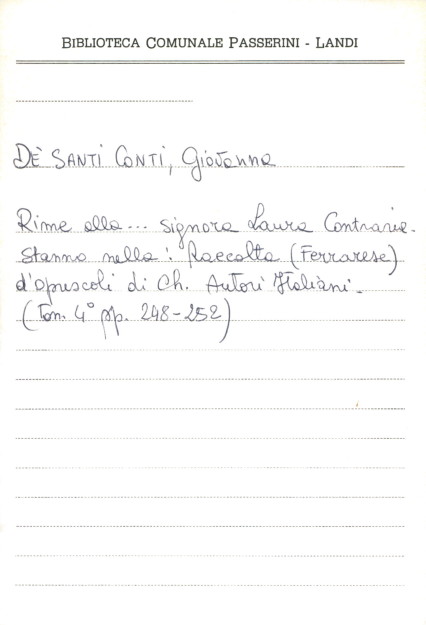 BIBLIOTECA COMUNALE PASSERINI - LANDI
DÈ SANTI CONTI, Giovanna
Rime alla... signora Laura Contraria.
Stanno nella: Raccolta (Ferrarese)
d'opuscoli di Ch. Autori Italiani.
(Tom. 4° pp. 248-252)